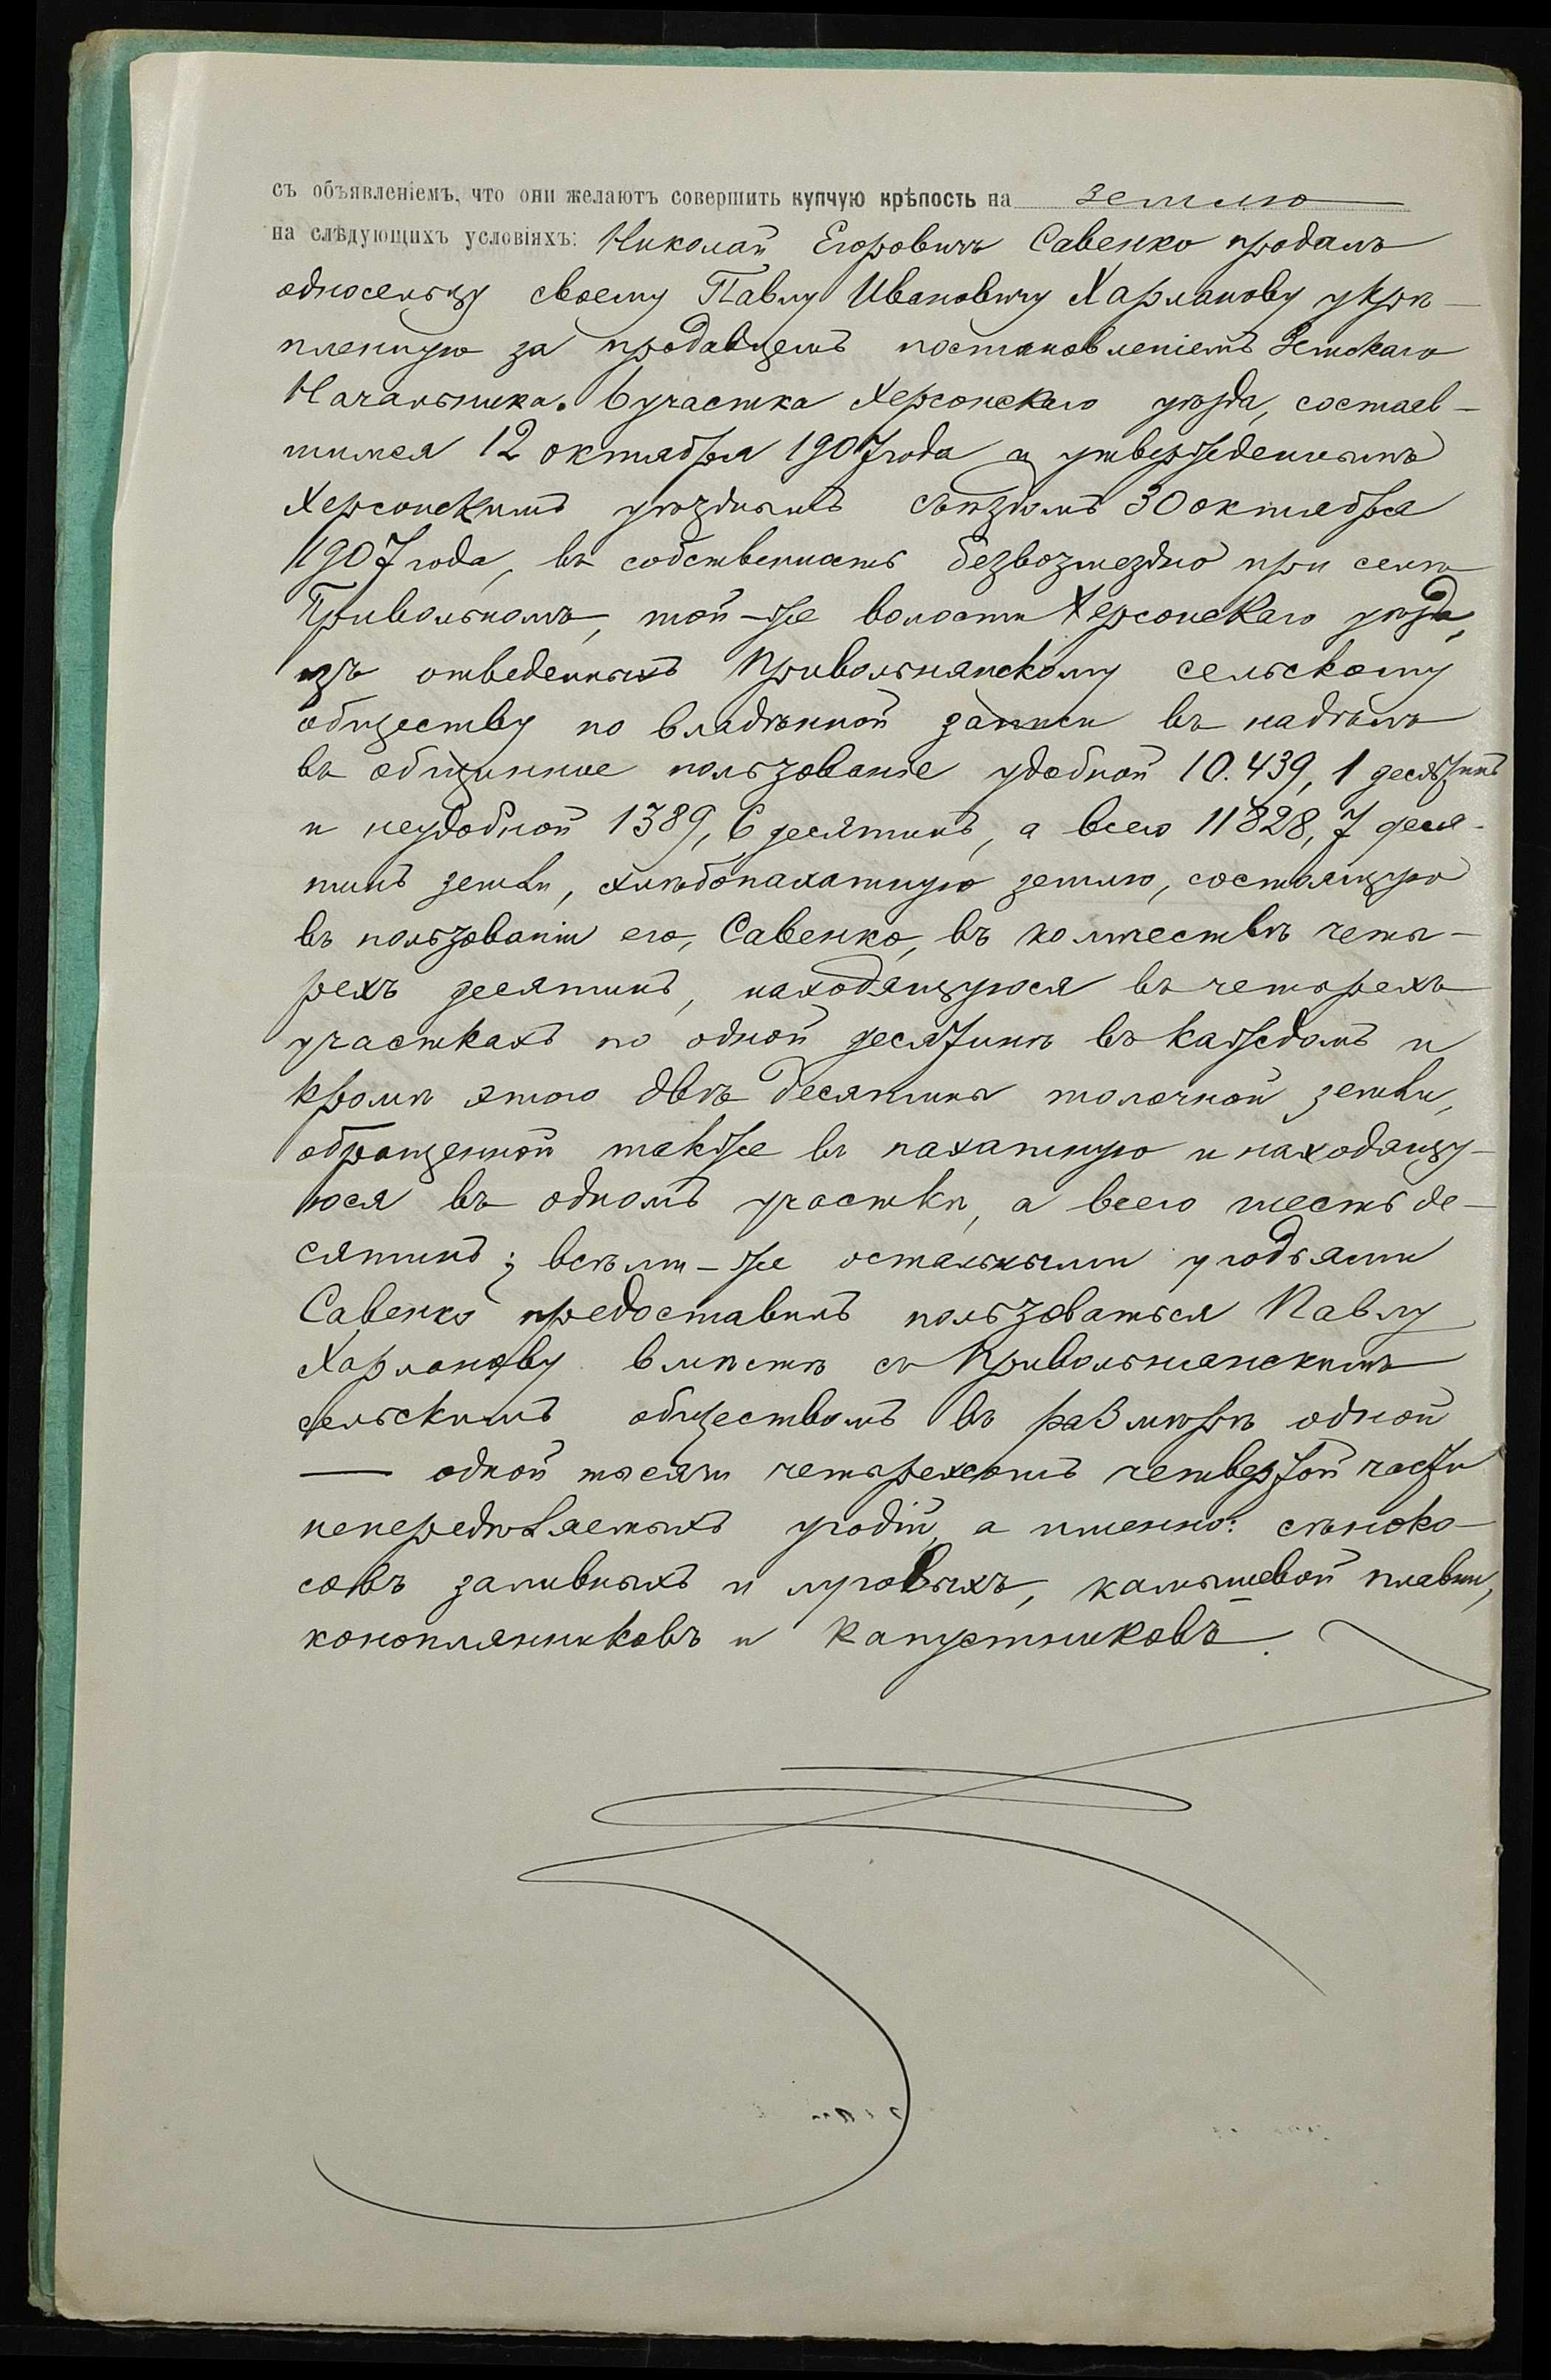 съ объявленіемъ, что они желаютъ совершить купчую крѣпость на землю
на слѣдующихъ условіяхъ: Николай Егоровичъ Савенко продалъ
односельцу своему Павлу Ивановичу Харланову укрѣ-
пленную за продавцемъ постановленіемъ Земскаго
Начальника 6 участка Херсонскаго уѣзда, состояв-
шимся 12 октября 1907 года и утвержденнымъ
Херсонскимъ уѣзднымъ съѣздомъ 30 октября
1907 года, въ собственность безвозмездно при селѣ
Привольномъ, той-же волости Херсонскаго уѣзда,
изъ отведенныхъ Привольнянскому сельскому
обществу по владѣнной записи въ надѣлъ
въ общинное пользованіе удобной 10.439,1 десятинъ
и неудобной 1389,6 десятинъ, а всего 11828,7 деся-
тинъ земли, хлѣбопахатную землю, состоящую
въ пользованіи его, Савенко, въ количествѣ четы-
рехъ десятинъ, находящуюся въ четырехъ
участкахъ по одной десятинѣ въ каждомъ и
кромѣ этого двѣ десятины толочной земли,
обращенной также въ пахатную и находящу-
юся въ одномъ участкѣ, а всего шесть де-
сятинъ; всѣми-же остальными угодьями
Савенко предоставилъ пользоваться Павлу
Харланову вмѣстѣ съ Привольнянскимъ
сельскимъ обществомъ въ размѣрѣ одной
— одной тысячи четырехсотъ четвертой части
непередѣляемыхъ угодій, а именно: сѣноко-
совъ заливныхъ и луговыхъ, камышевой плавни,
конопляниковъ и капустниковъ.